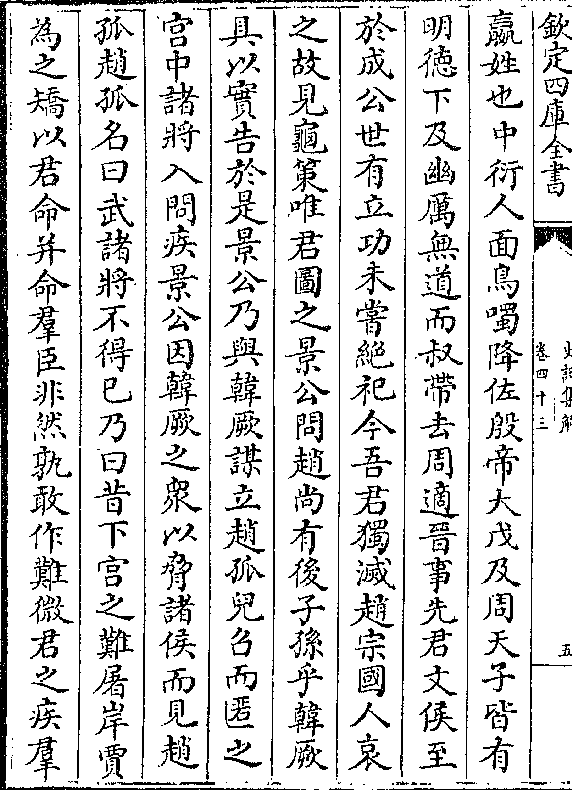 欽定四庫全書
史記集解
卷四十三
五
嬴姓也中衍人面鳥噣降佐殷帝大戊及周天子皆有
明徳下及幽厲無道而叔帶去周適晉事先君文侯至
於成公世有立功未嘗絶祀今吾君獨滅趙宗國人哀
之故見龜策唯君圖之景公問趙尚有後子孫乎韓厥
具以實告於是景公乃與韓厥謀立趙孤兒召而匿之
宫中諸將入問疾景公因韓厥之衆以脅諸侯而見趙
孤趙孤名曰武諸將不得已乃曰昔下宫之難屠岸賈
為之矯以君命并命羣臣非然孰敢作難微君之疾羣